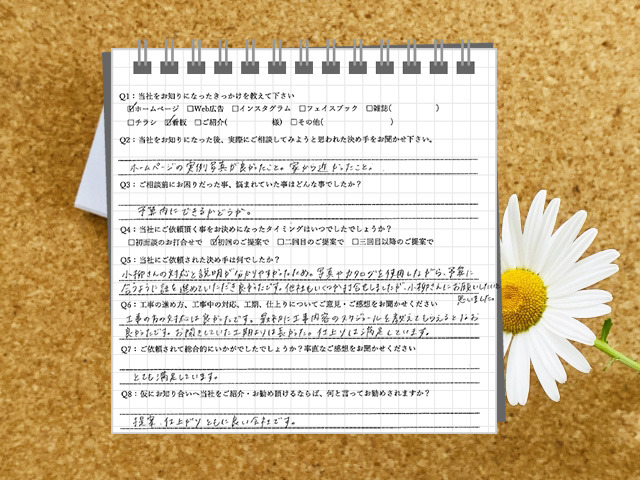 Q1：当社をお知りになったきっかけを教えて下さい
☑ホームページ □Web広告 □インスタグラム □フェイスブック □雑誌( )
□チラシ ☑看板 □ご紹介( 様) □その他( )
Q2：当社をお知りになった後、実際にご相談してみようと思われた決め手をお聞かせ下さい。
ホームページの実例写真が良かったこと。家から近かったこと。
Q3：ご相談前にお困りだった事、悩まれていた事はどんな事でしたか？
予算内にできるかどうか。
Q4：当社にご依頼頂く事をお決めになったタイミングはいつでしたでしょうか？
□初面談のお打合せで ☑初回のご提案で □二回目のご提案で □三回目以降のご提案で
Q5：当社にご依頼された決め手は何でしたか？
小柳さんの対応と説明が分かりやすかったため。写真やカタログを使用しながら、予算に
合うように話を進めていただき良かったです。他社もいくつか打合せしましたが、小柳さんにお願いしたいと
思いました。
Q6：工事の進め方、工事中の対応、工期、仕上りについてご意見・ご感想をお聞かせください
工事の方の対応は良かったです。数有りに工事内容のスケジュールを教えてもらえるとなお
良かったです。お聞きしていた工期よりは長かった。仕上りは満足しています。
Q7：ご依頼されて総合的にいかがでしたでしょうか？率直なご感想をお聞かせください
とても満足しています。
Q8：仮にお知り合いへ当社をご紹介・お勧め頂けるならば、何と言ってお勧めされますか？
提案、仕上がりともに良い会社です。